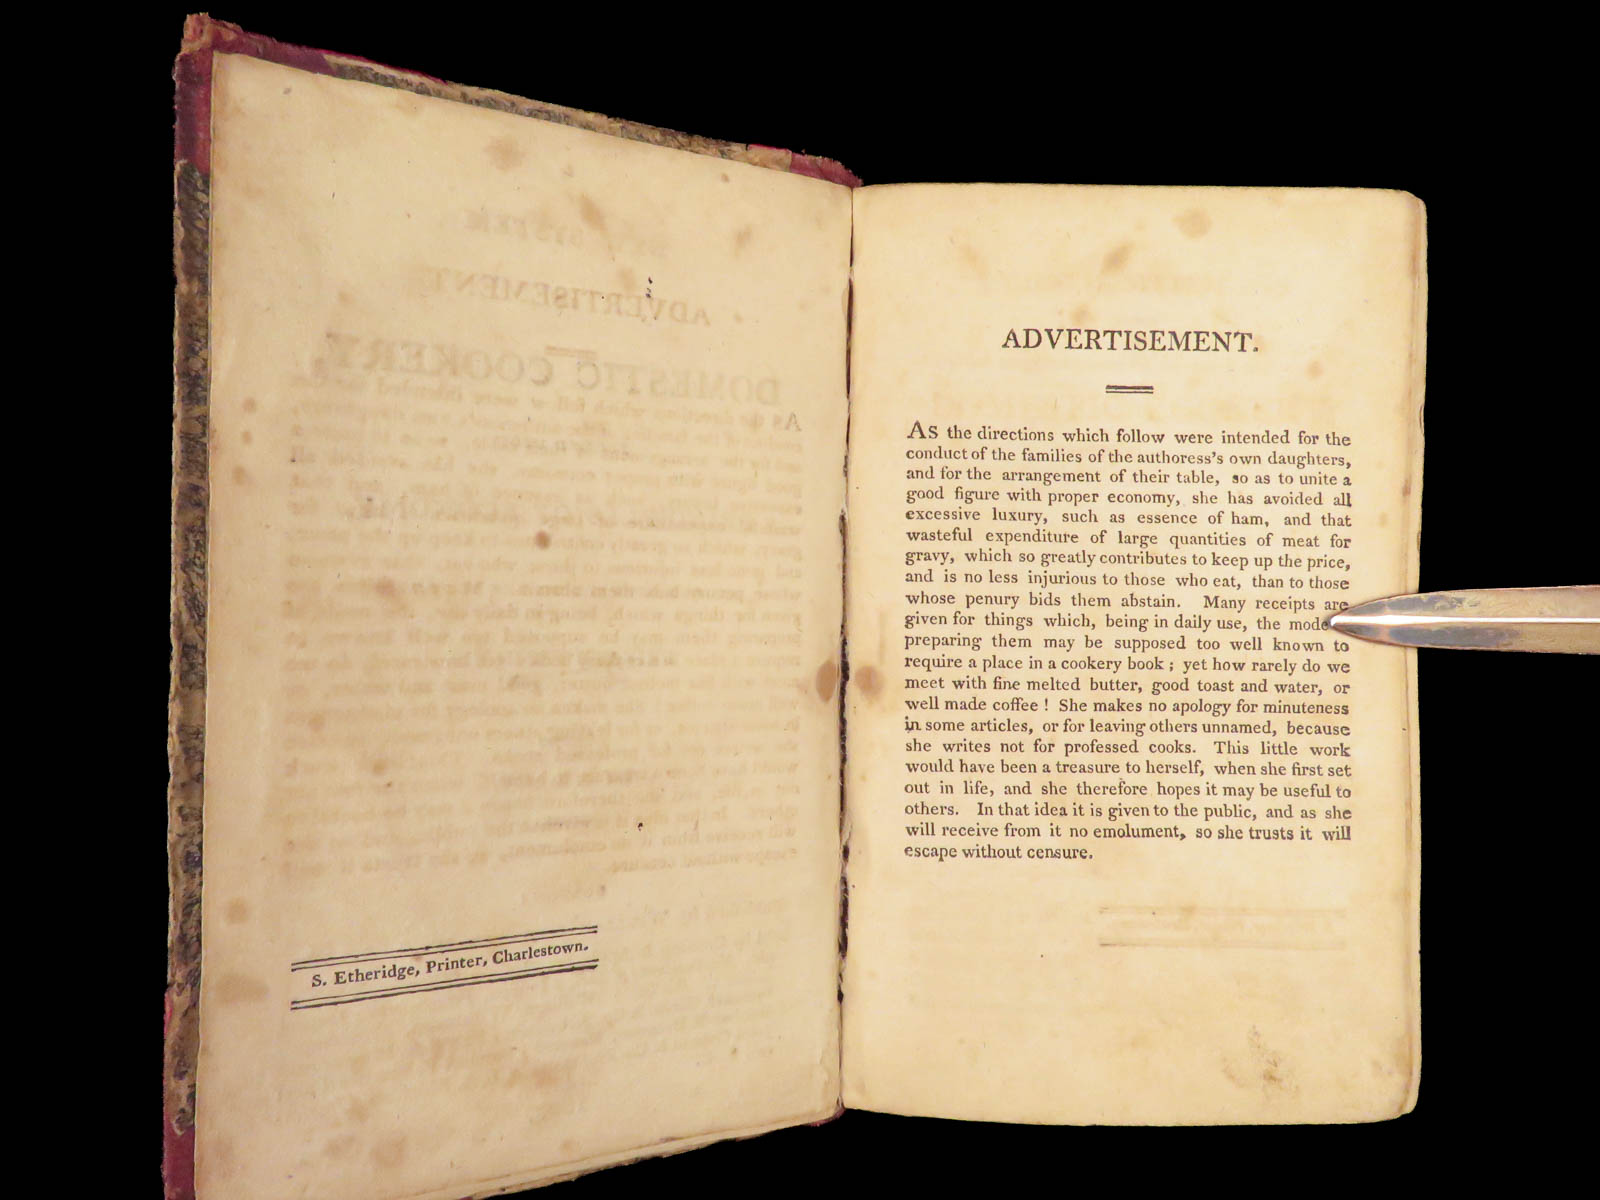 S. Etheridge, Printer, Charlestown.
ADVERTISEMENT.
AS the directions which follow were intended for the
conduct of the families of the authoress's own daughters,
and for the arrangement of their table, so as to unite a
good figure with proper economy, she has avoided all
excessive luxury, such as essence of ham, and that
wasteful expenditure of large quantities of meat for
gravy, which so greatly contributes to keep up the price,
and is no less injurious to those who eat, than to those
whose penury bids them abstain. Many receipts are
given for things which, being in daily use, the mode
preparing them may be supposed too well known to
require a place in a cookery book ; yet how rarely do we
meet with fine melted butter, good toast and water, or
well made coffee ! She makes no apology for minuteness
in some articles, or for leaving others unnamed, because
she writes not for professed cooks. This little work
would have been a treasure to herself, when she first set
out in life, and she therefore hopes it may be useful to
others. In that idea it is given to the public, and as she
will receive from it no emolument, so she trusts it will
escape without censure.